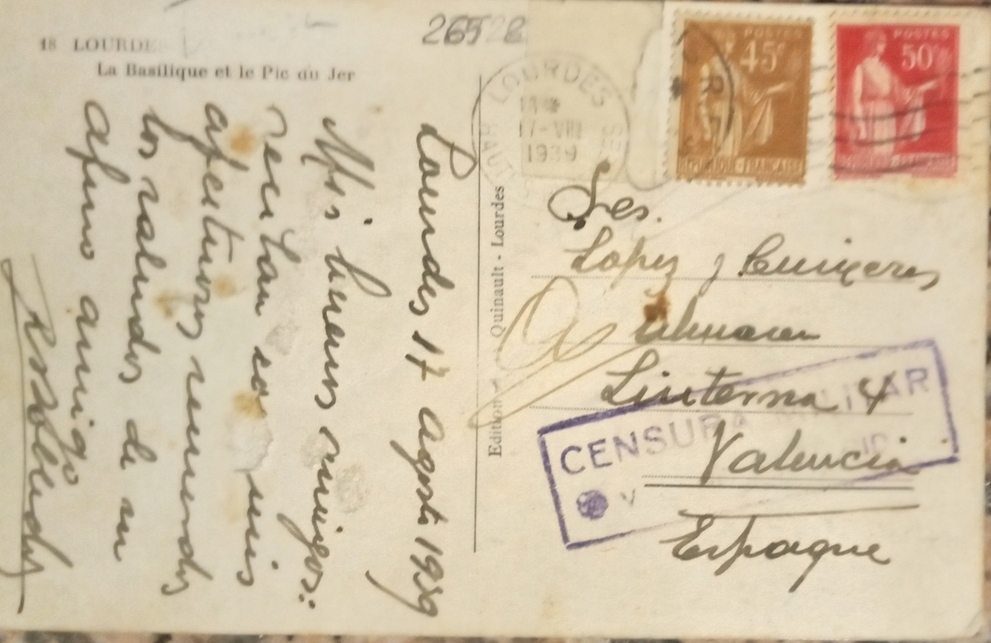 26528
18 LOURDES
La Basilique et le Pic du Jer
LOURDES
17-VIII
1939
POSTES
45c
REPUBLIQUE-FRANÇAISE
POSTES
50c
REPUBLIQUE-FRANÇAISE
Editions Quinault - Lourdes
Lourdes 17 Agosto 1939
Mis buenos amigos:
reciban con mis
afectuosos recuerdos
los saludos de su
afmo amigo
Sres.
Lopez y
Almacen
Linterna 4
Valencia
Espagne
CENSURA MILITAR